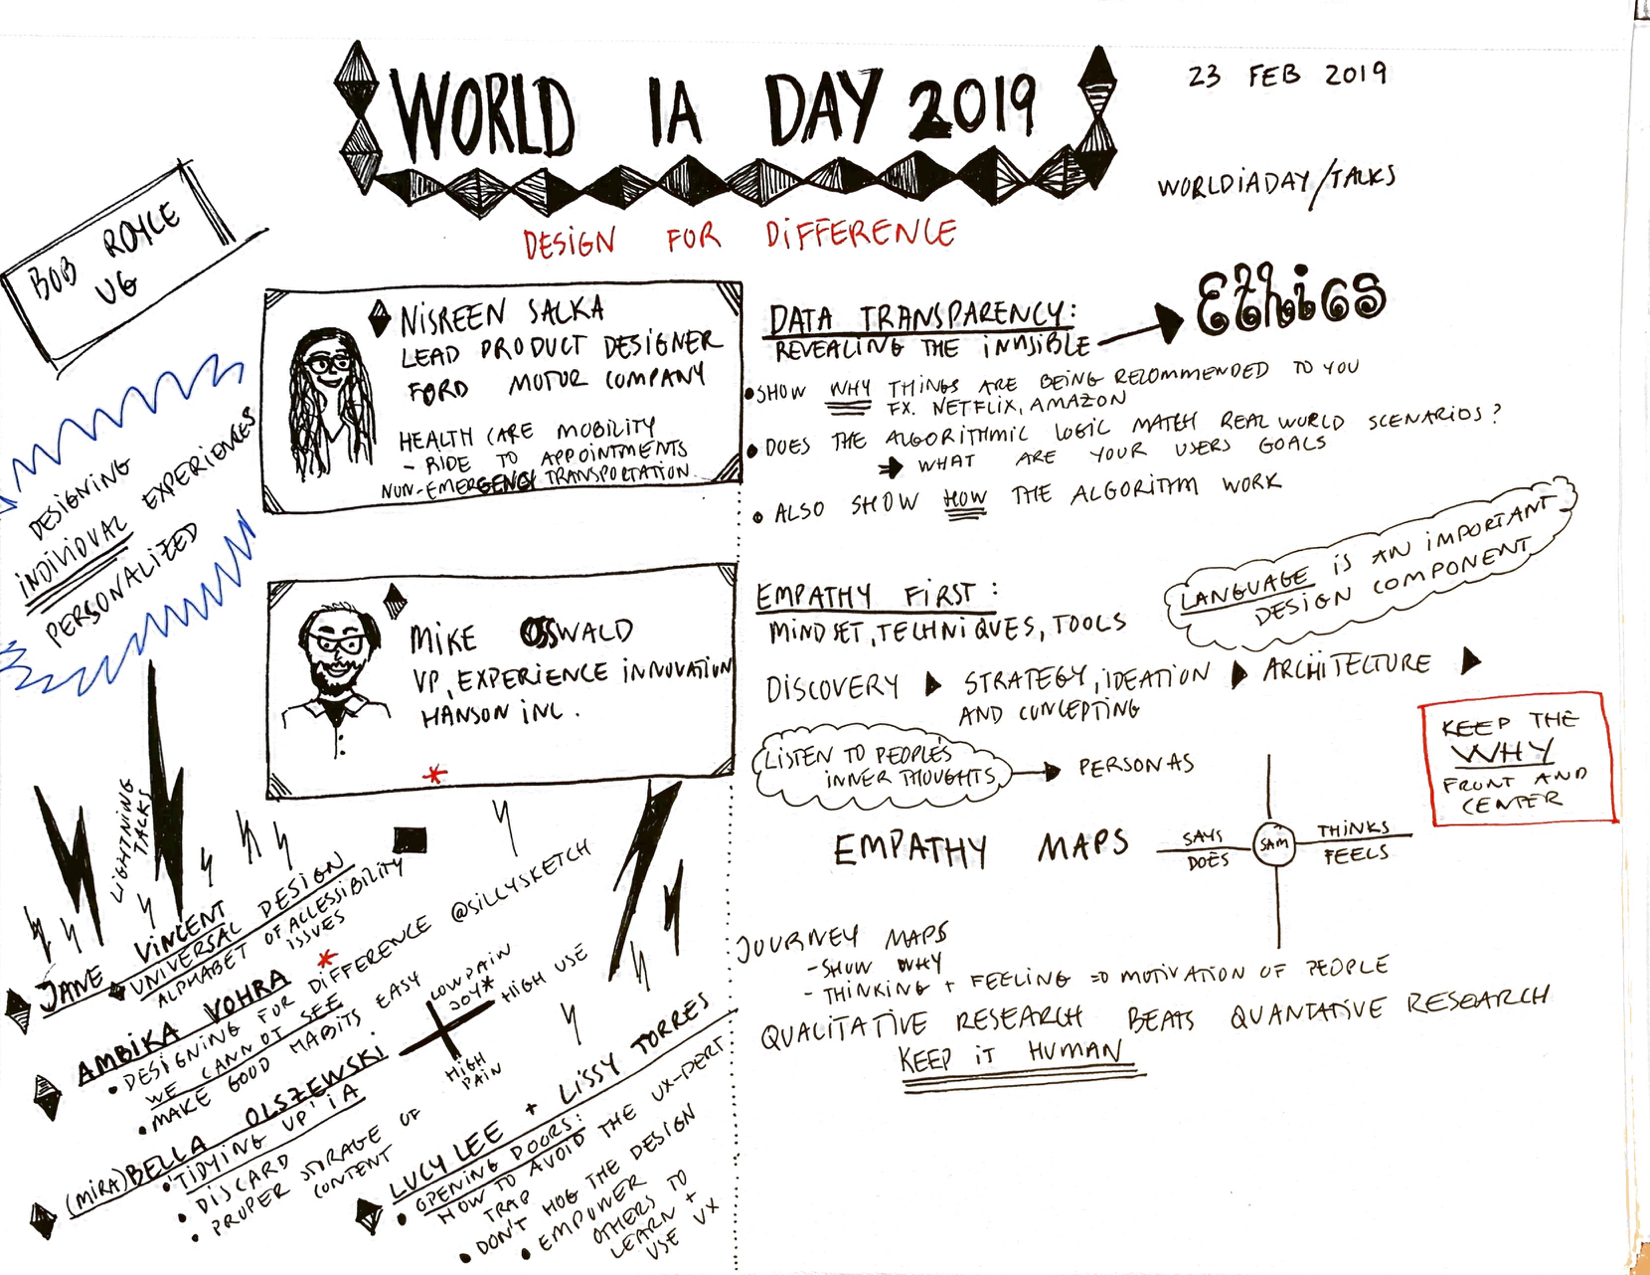 WORLD IA DAY 2019
23 FEB 2019
WORLDIADAY/TALKS
DESIGN FOR DIFFERENCE
BOB ROYLE
UG
DESIGNING
INDIVIDUAL EXPERIENCES
PERSONALIZED
NISREEN SALKA
LEAD PRODUCT DESIGNER
FORD MOTOR COMPANY
HEALTH CARE MOBILITY
- RIDE TO APPOINTMENTS
NON-EMERGENCY TRANSPORTATION
DATA TRANSPARENCY:
REVEALING THE INVISIBLE
Ethics
• SHOW WHY THINGS ARE BEING RECOMMENDED TO YOU
FX. NETFLIX, AMAZON
• DOES THE ALGORITHMIC LOGIC MATCH REAL WORLD SCENARIOS?
WHAT ARE YOUR USERS GOALS
• ALSO SHOW HOW THE ALGORITHM WORK
MIKE OSSWALD
VP, EXPERIENCE INNOVATION
HANSON INC.
*
EMPATHY FIRST:
MINDSET, TECHNIQUES, TOOLS
LANGUAGE IS AN IMPORTANT
DESIGN COMPONENT
DISCOVERY STRATEGY, IDEATION ARCHITECTURE
AND CONCEPTING
LISTEN TO PEOPLE'S
INNER THOUGHTS
PERSONAS
KEEP THE
WHY
FRONT AND
CENTER
EMPATHY MAPS
SAYS
DOES
SAM
THINKS
FEELS
JOURNEY MAPS
- SHOW WHY
- THINKING + FEELING => MOTIVATION OF PEOPLE
QUALITATIVE RESEARCH BEATS QUANTATIVE RESEARCH
KEEP IT HUMAN
LIGHTNING
TALKS
JANE VINCENT
UNIVERSAL DESIGN
ALPHABET OF ACCESSIBILITY
ISSUES
AMBIKA VOHRA *
@SILLYSKETCH
• DESIGNING FOR DIFFERENCE
WE CANNOT SEE
• MAKE GOOD HABITS EASY
LOW PAIN
JOY*
HIGH USE
HIGH
PAIN
(MIRA)BELLA OLSZEWSKI
• 'TIDYING UP' IA
• DISCARD
• PROPER STORAGE OF
CONTENT
LUCY LEE + LISSY TORRES
• OPENING DOORS:
HOW TO AVOID THE UX-PERT
TRAP
• DON'T HOG THE DESIGN
• EMPOWER
OTHERS TO
LEARN +
USE UX